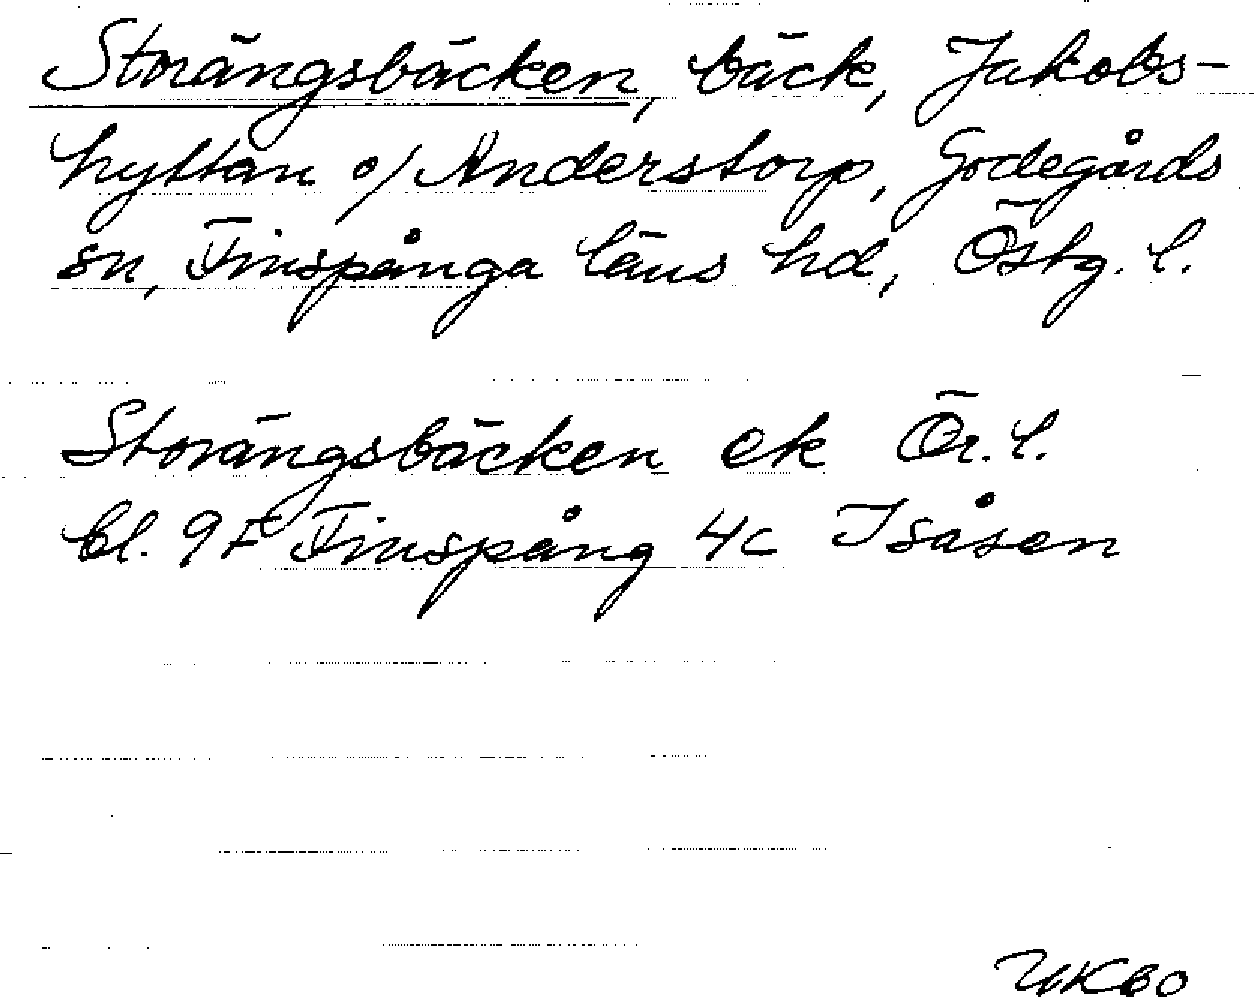 Storängsbäcken, bäck, Jakobs-
hyttan o/ Anderstorp, Godegårds
sn, Finspånga läns hd, Östg. l.
Storängsbäcken ek Ör. l.
bl. 9F Finspång 4c Isåsen